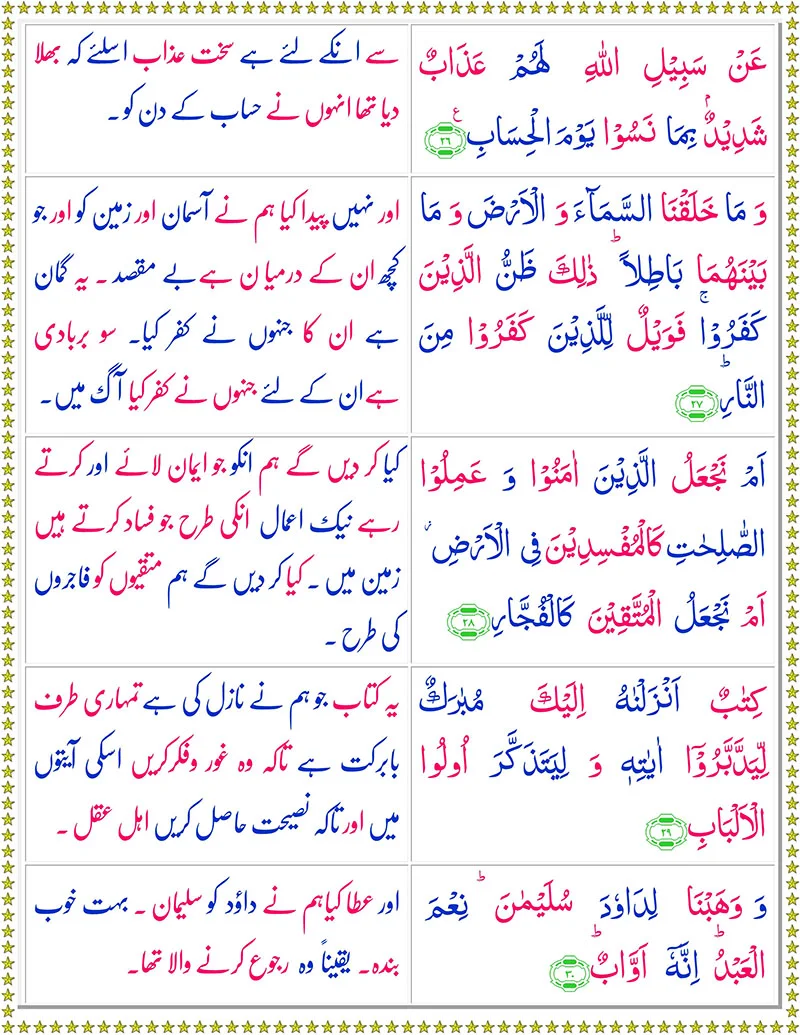 عَنْ سَبِيْلِ اللّٰهِ لَهُمْ عَذَابٌ
شَدِيْدٌۢ بِمَا نَسُوْا يَوْمَ الْحِسَابِ ﴿۲۶﴾ ع
سے انکے لئے ہے سخت عذاب اسلئے کہ بھلا
دیا تھا انہوں نے حساب کے دن کو۔
وَ مَا خَلَقْنَا السَّمَآءَ وَ الْاَرْضَ وَ مَا
بَيْنَهُمَا بَاطِلًا ؕ ذٰلِكَ ظَنُّ الَّذِيْنَ
كَفَرُوْا ۚ فَوَيْلٌ لِّلَّذِيْنَ كَفَرُوْا مِنَ
النَّارِ ؕ ﴿۲۷﴾
اور نہیں پیدا کیا ہم نے آسمان اور زمین کو اور جو
کچھ ان کے درمیا ن ہے بے مقصد ۔ یہ گمان
ہے ان کا جنہوں نے کفر کیا۔ سو بربادی
ہے ان کے لئے جنہوں نے کفر کیا آگ میں۔
اَمْ نَجْعَلُ الَّذِيْنَ اٰمَنُوْا وَ عَمِلُوا
الصّٰلِحٰتِ كَالْمُفْسِدِيْنَ فِى الْاَرْضِ ؗ
اَمْ نَجْعَلُ الْمُتَّقِيْنَ كَالْفُجَّارِ ﴿۲۸﴾
کیا کر دیں گے ہم انکو جو ایمان لائے اور کرتے
رہے نیک اعمال انکی طرح جو فساد کرتے ہیں
زمین میں ۔ کیا کر دیں گے ہم متقیوں کو فاجروں
کی طرح ۔
كِتٰبٌ اَنْزَلْنٰهُ اِلَيْكَ مُبٰرَكٌ
لِّيَدَّبَّرُوْۤا اٰيٰتِهٖ وَ لِيَتَذَكَّرَ اُولُوا
الْاَلْبَابِ ﴿۲۹﴾
یہ کتاب جو ہم نے نازل کی ہے تمہاری طرف
بابرکت ہے تاکہ وہ غور وفکر کریں اسکی آیتوں
میں اور تاکہ نصیحت حاصل کریں اہل عقل ۔
وَ وَهَبْنَا لِدَاوٗدَ سُلَيْمٰنَ ؕ نِعْمَ
الْعَبْدُ ؕ اِنَّهٗۤ اَوَّابٌ ؕ ﴿۳۰﴾
اور عطا کیا ہم نے داؤد کو سلیمان ۔ بہت خوب
بندہ۔ یقیناً وہ رجوع کرنے والا تھا۔